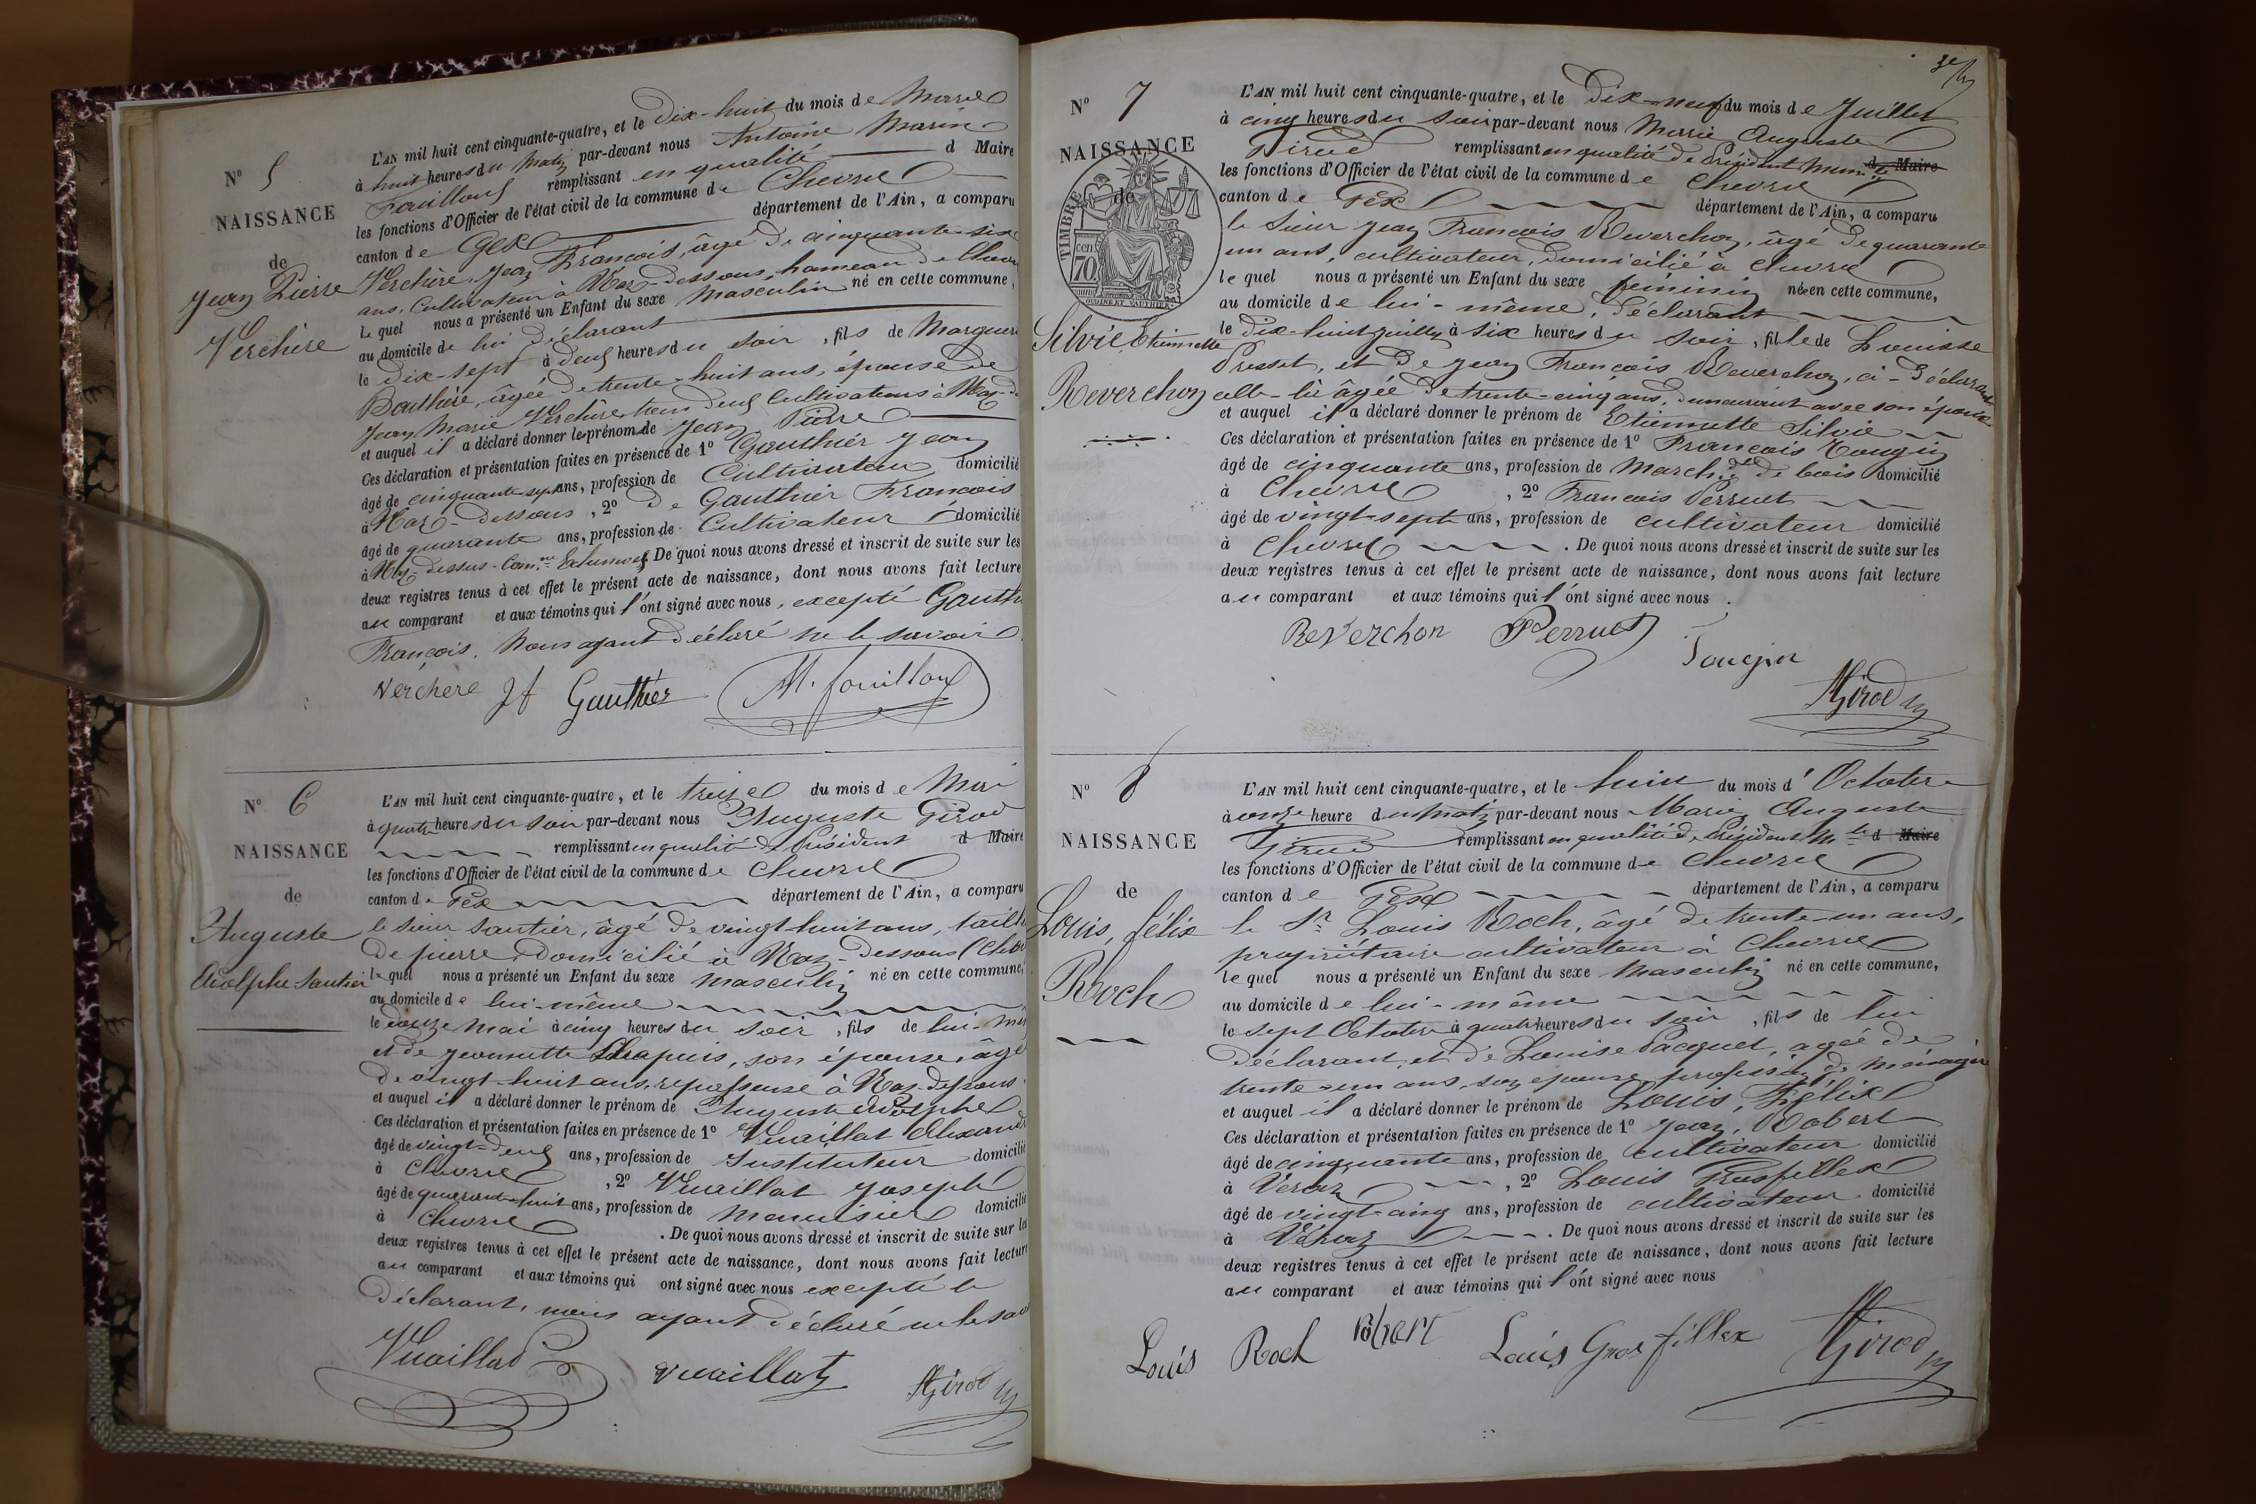 N° 5
NAISSANCE
de
Jean Pierre
Verchère
L'AN mil huit cent cinquante-quatre, et le Dix-huit du mois de Mars
à huit heures du Matin par-devant nous Antoine Marin
Fouilloux remplissant en qualité d Maire
les fonctions d'Officier de l'état civil de la commune de Chevry
canton de Gex département de l'Ain, a comparu
Verchère, Jean François, âgé de cinquante-six
ans, Cultivateur à Naz-dessous, hameau de
le quel nous a présenté un Enfant du sexe masculin né en cette commune,
au domicile de lui déclarant
le dix-sept à deux heures du soir, fils de
Bouthière, âgée de trente-huit ans, épouse de
Jean Marie Verchère tous deux Cultivateurs à
et auquel il a déclaré donner le prénom de Jean Pierre
Ces déclaration et présentation faites en présence de 1° Gauthier Jean
âgé de cinquante sept ans, profession de Cultivateur domicilié
à Naz-dessous, 2° de Gauthier François
âgé de quarante ans, profession de Cultivateur domicilié
à Naz-dessus-Com.ne Echenevex De quoi nous avons dressé et inscrit de suite sur les
deux registres tenus à cet effet le présent acte de naissance, dont nous avons fait lecture
au comparant et aux témoins qui l'ont signé avec nous, excepté
François. Nous ayant déclaré ne le savoir.
Verchere Jf Gauthier M. fouilloux
N° 6
NAISSANCE
de
Auguste
Adolphe Sautier
L'AN mil huit cent cinquante-quatre, et le treize du mois de Mai
à quatre heures du soir par-devant nous Auguste Girod
remplissant en qualité de Président d Maire
les fonctions d'Officier de l'état civil de la commune de Chevry
canton de Gex département de l'Ain, a comparu
le sieur Sautier, âgé de vingt huit ans,
de pierre, domicilié à Naz-dessous
le quel nous a présenté un Enfant du sexe masculin né en cette commune,
au domicile de lui-même
le douze mai à cinq heures du soir, fils de lui-
et de Jeannette Chapuis, son épouse,
de vingt-huit ans, repasseuse à Naz-dessous.
et auquel il a déclaré donner le prénom de Auguste Adolphe
Ces déclaration et présentation faites en présence de 1° Vuaillat
âgé de vingt-deux ans, profession de Instituteur domicilié
à Chevry, 2° Vuaillat Joseph
âgé de quarante-huit ans, profession de Menuisier domicilié
à Chevry. De quoi nous avons dressé et inscrit de suite sur les
deux registres tenus à cet effet le présent acte de naissance, dont nous avons fait lecture
au comparant et aux témoins qui ont signé avec nous excepté le
déclarant, nous ayant déclaré ne le
Vuaillat Vuaillat AGirod
N° 7
NAISSANCE
de
TIMBRE
70 cen
Silvie Etiennette
Reverchon
L'AN mil huit cent cinquante-quatre, et le Dix-neuf du mois de Juillet
à cinq heures du soir par-devant nous Marie Auguste
Girod remplissant en qualité de Président d Maire
les fonctions d'Officier de l'état civil de la commune de Chevry
canton de Gex département de l'Ain, a comparu
le Sieur Jean François Reverchon, âgé de quarante
un ans, cultivateur, domicilié à Chevry
le quel nous a présenté un Enfant du sexe féminin née en cette commune,
au domicile de lui-même, déclarant
le dix-huit juillet à six heures du soir, fille de Louise
Presset, et de Jean François Reverchon, ci-déclarant
celle-là âgée de trente-cinq ans, demeurant avec son époux
et auquel il a déclaré donner le prénom de Etiennette Silvie
Ces déclaration et présentation faites en présence de 1° François Tougin
âgé de cinquante ans, profession de March.d de bois domicilié
à Chevry, 2° François Perruet
âgé de vingt-sept ans, profession de cultivateur domicilié
à Chevry. De quoi nous avons dressé et inscrit de suite sur les
deux registres tenus à cet effet le présent acte de naissance, dont nous avons fait lecture
au comparant et aux témoins qui l'ont signé avec nous.
Reverchon Perruet
Tougin
AGirod
N° 8
NAISSANCE
de
Louis, félix
Roch
L'AN mil huit cent cinquante-quatre, et le huit du mois d'Octobre
à onze heure du matin par-devant nous Marie Auguste
Girod remplissant en qualité de Président M d Maire
les fonctions d'Officier de l'état civil de la commune de Chevry
canton de Gex département de l'Ain, a comparu
le Sr Louis Roch, âgé de trente-un ans,
propriétaire cultivateur à Chevry
le quel nous a présenté un Enfant du sexe Masculin né en cette commune,
au domicile de lui-même
le sept Octobre à quatre heures du soir, fils de lui
déclarant, et de Louise Pacquet, agée de
trente-un ans, son épouse profession de ménagère
et auquel il a déclaré donner le prénom de Louis, Félix
Ces déclaration et présentation faites en présence de 1° Jean, Robert
âgé de cinquante ans, profession de cultivateur domicilié
à Veraz, 2° Louis Grosfillex
âgé de vingt-cinq ans, profession de cultivateur domicilié
à Véraz. De quoi nous avons dressé et inscrit de suite sur les
deux registres tenus à cet effet le présent acte de naissance, dont nous avons fait lecture
au comparant et aux témoins qui l'ont signé avec nous
Louis Roch Robert Louis Gros fillex AGirod